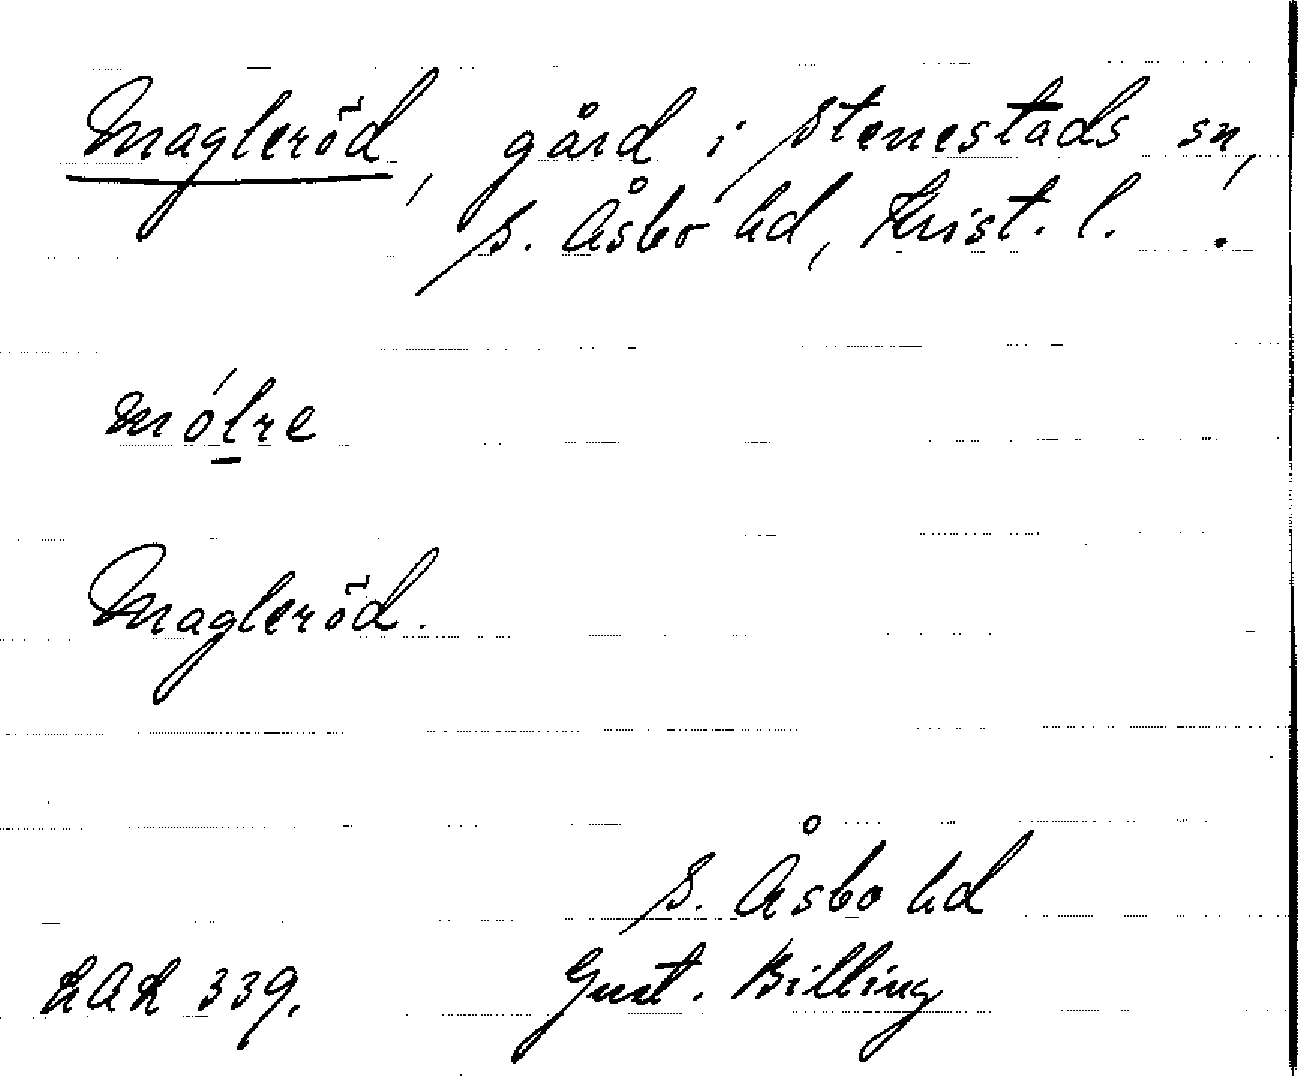 Magleröd, gård i Stenestads sn,
S. Åsbo hd, Krist. l.
mólre
Magleröd.
S. Åsbo hd
LAL 339. Gust. Billing